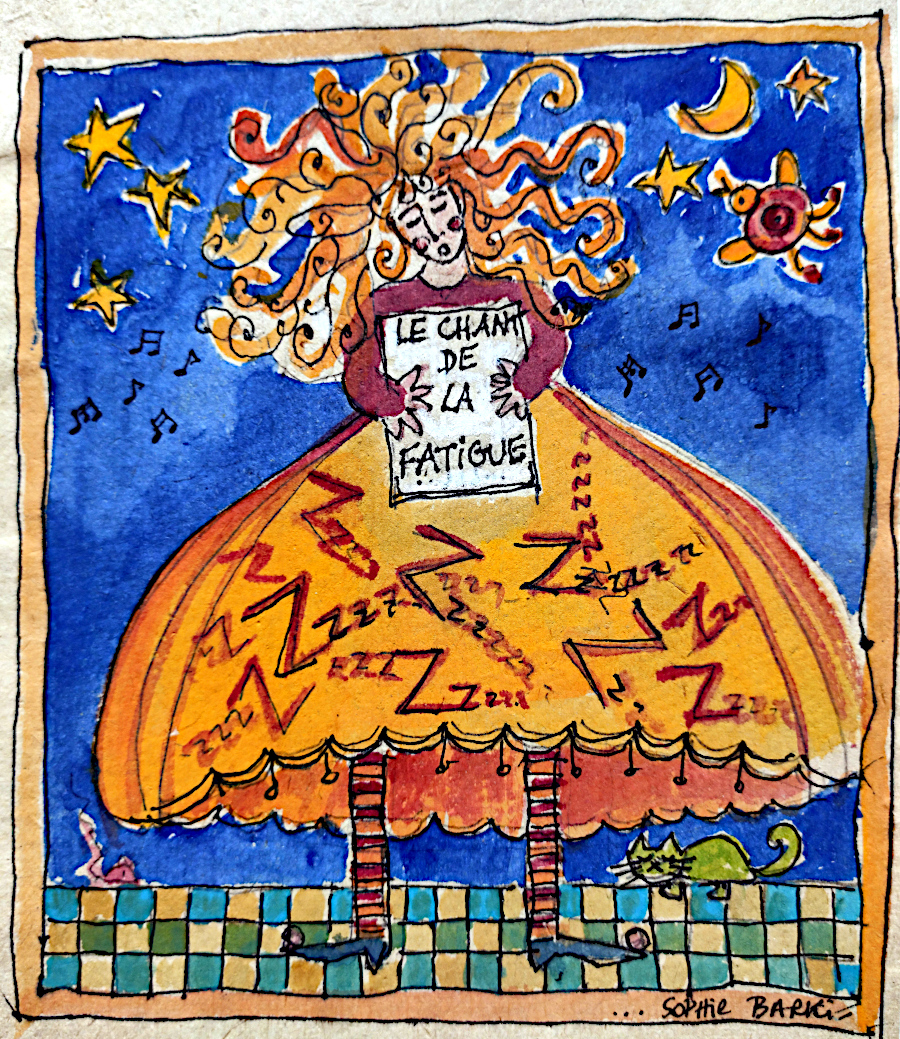 LE CHANT
DE
LA
FATIGUE
Z
Z
Zzzz
zzzz
Zzzz
zzz
zzzZ
Zzzz
Zzzz
... SOPHIE BARKI